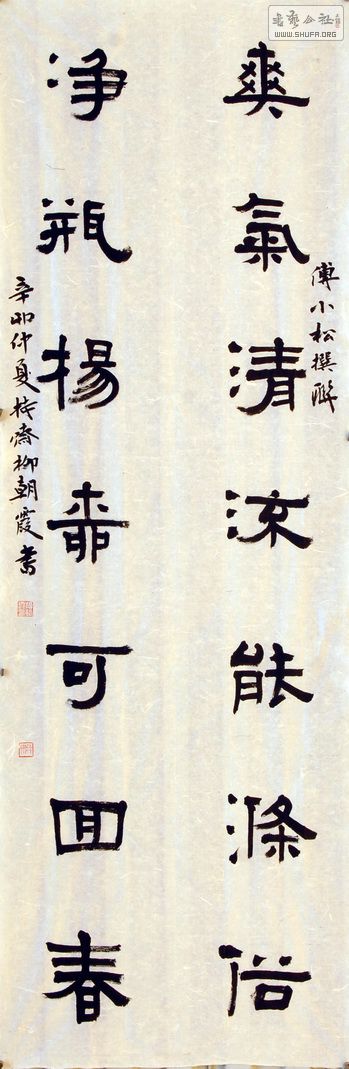 書藝公社
WWW.SHUFA.ORG
傅小松撰聯
爽氣清流能滌俗
净瓶揚柳可回春
辛卯仲夏齋柳朝霞書